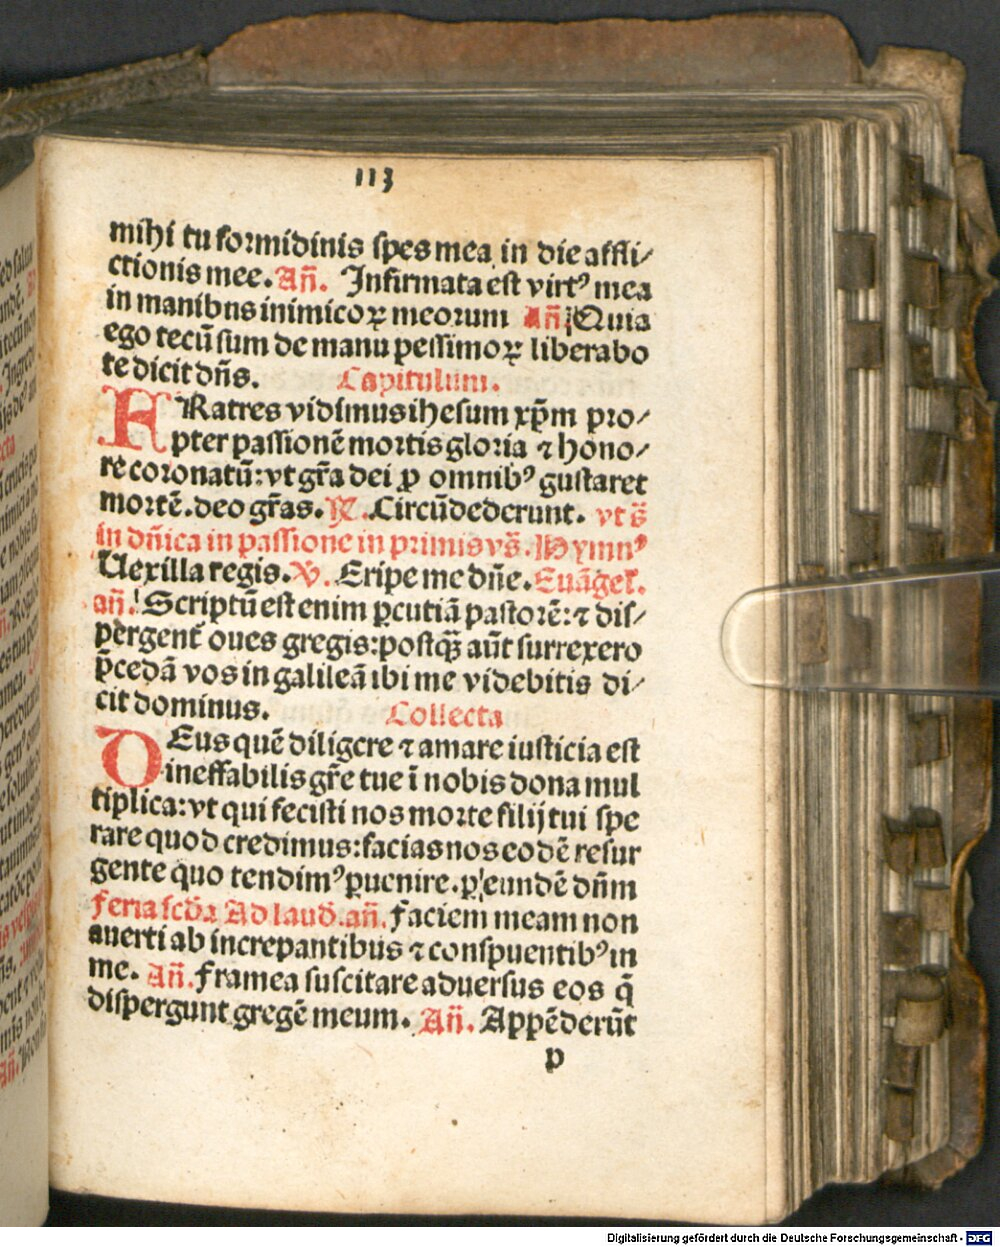 113
mihi tu formidinis spes mea in die affli/
ctionis mee. An̄. Infirmata est virtꝰ mea
in manibns inimicoꝝ meorum An̄. Quia
ego tecū sum de manu pessimoꝝ liberabo
te dicit dn̄s. Capitulum.
FRatres vidimus ihesum xp̄m pro/
pter passionē mortis gloria ⁊ hono/
re coronatū: vt gr̄a dei ꝓ omnibꝰ gustaret
mortē. deo gr̄as. ℟. Circūdederunt. vt s̄
in dn̄ica in passione in primis vs̄. Hymnꝰ
Uexilla regis. ℣. Eripe me dn̄e. Euāgel.
an̄. Scriptū est enim ꝑcutiā pastorē: ⁊ dis/
pergent̄ oues gregis: postq̄ȝ aūt surrexero
p̄cedā vos in galileā ibi me videbitis di/
cit dominus. Collecta
DEus quē diligere ⁊ amare iusticia est
ineffabilis gr̄e tue ī nobis dona mul
tiplica: vt qui fecisti nos morte filij tui spe
rare quod credimus: facias nos eodē resur
gente quo tendimꝰ ꝑuenire. ꝑ eundē dn̄m
feria scd̄a Ad laud. an̄. Faciem meam non
auerti ab increpantibus ⁊ conspuentibꝰ in
me. An̄. Framea suscitare aduersus eos q̄
dispergunt gregē meum. An̄. Appēderūt
p
ed salua
Digitalisierung gefördert durch die Deutsche Forschungsgemeinschaft - DFG